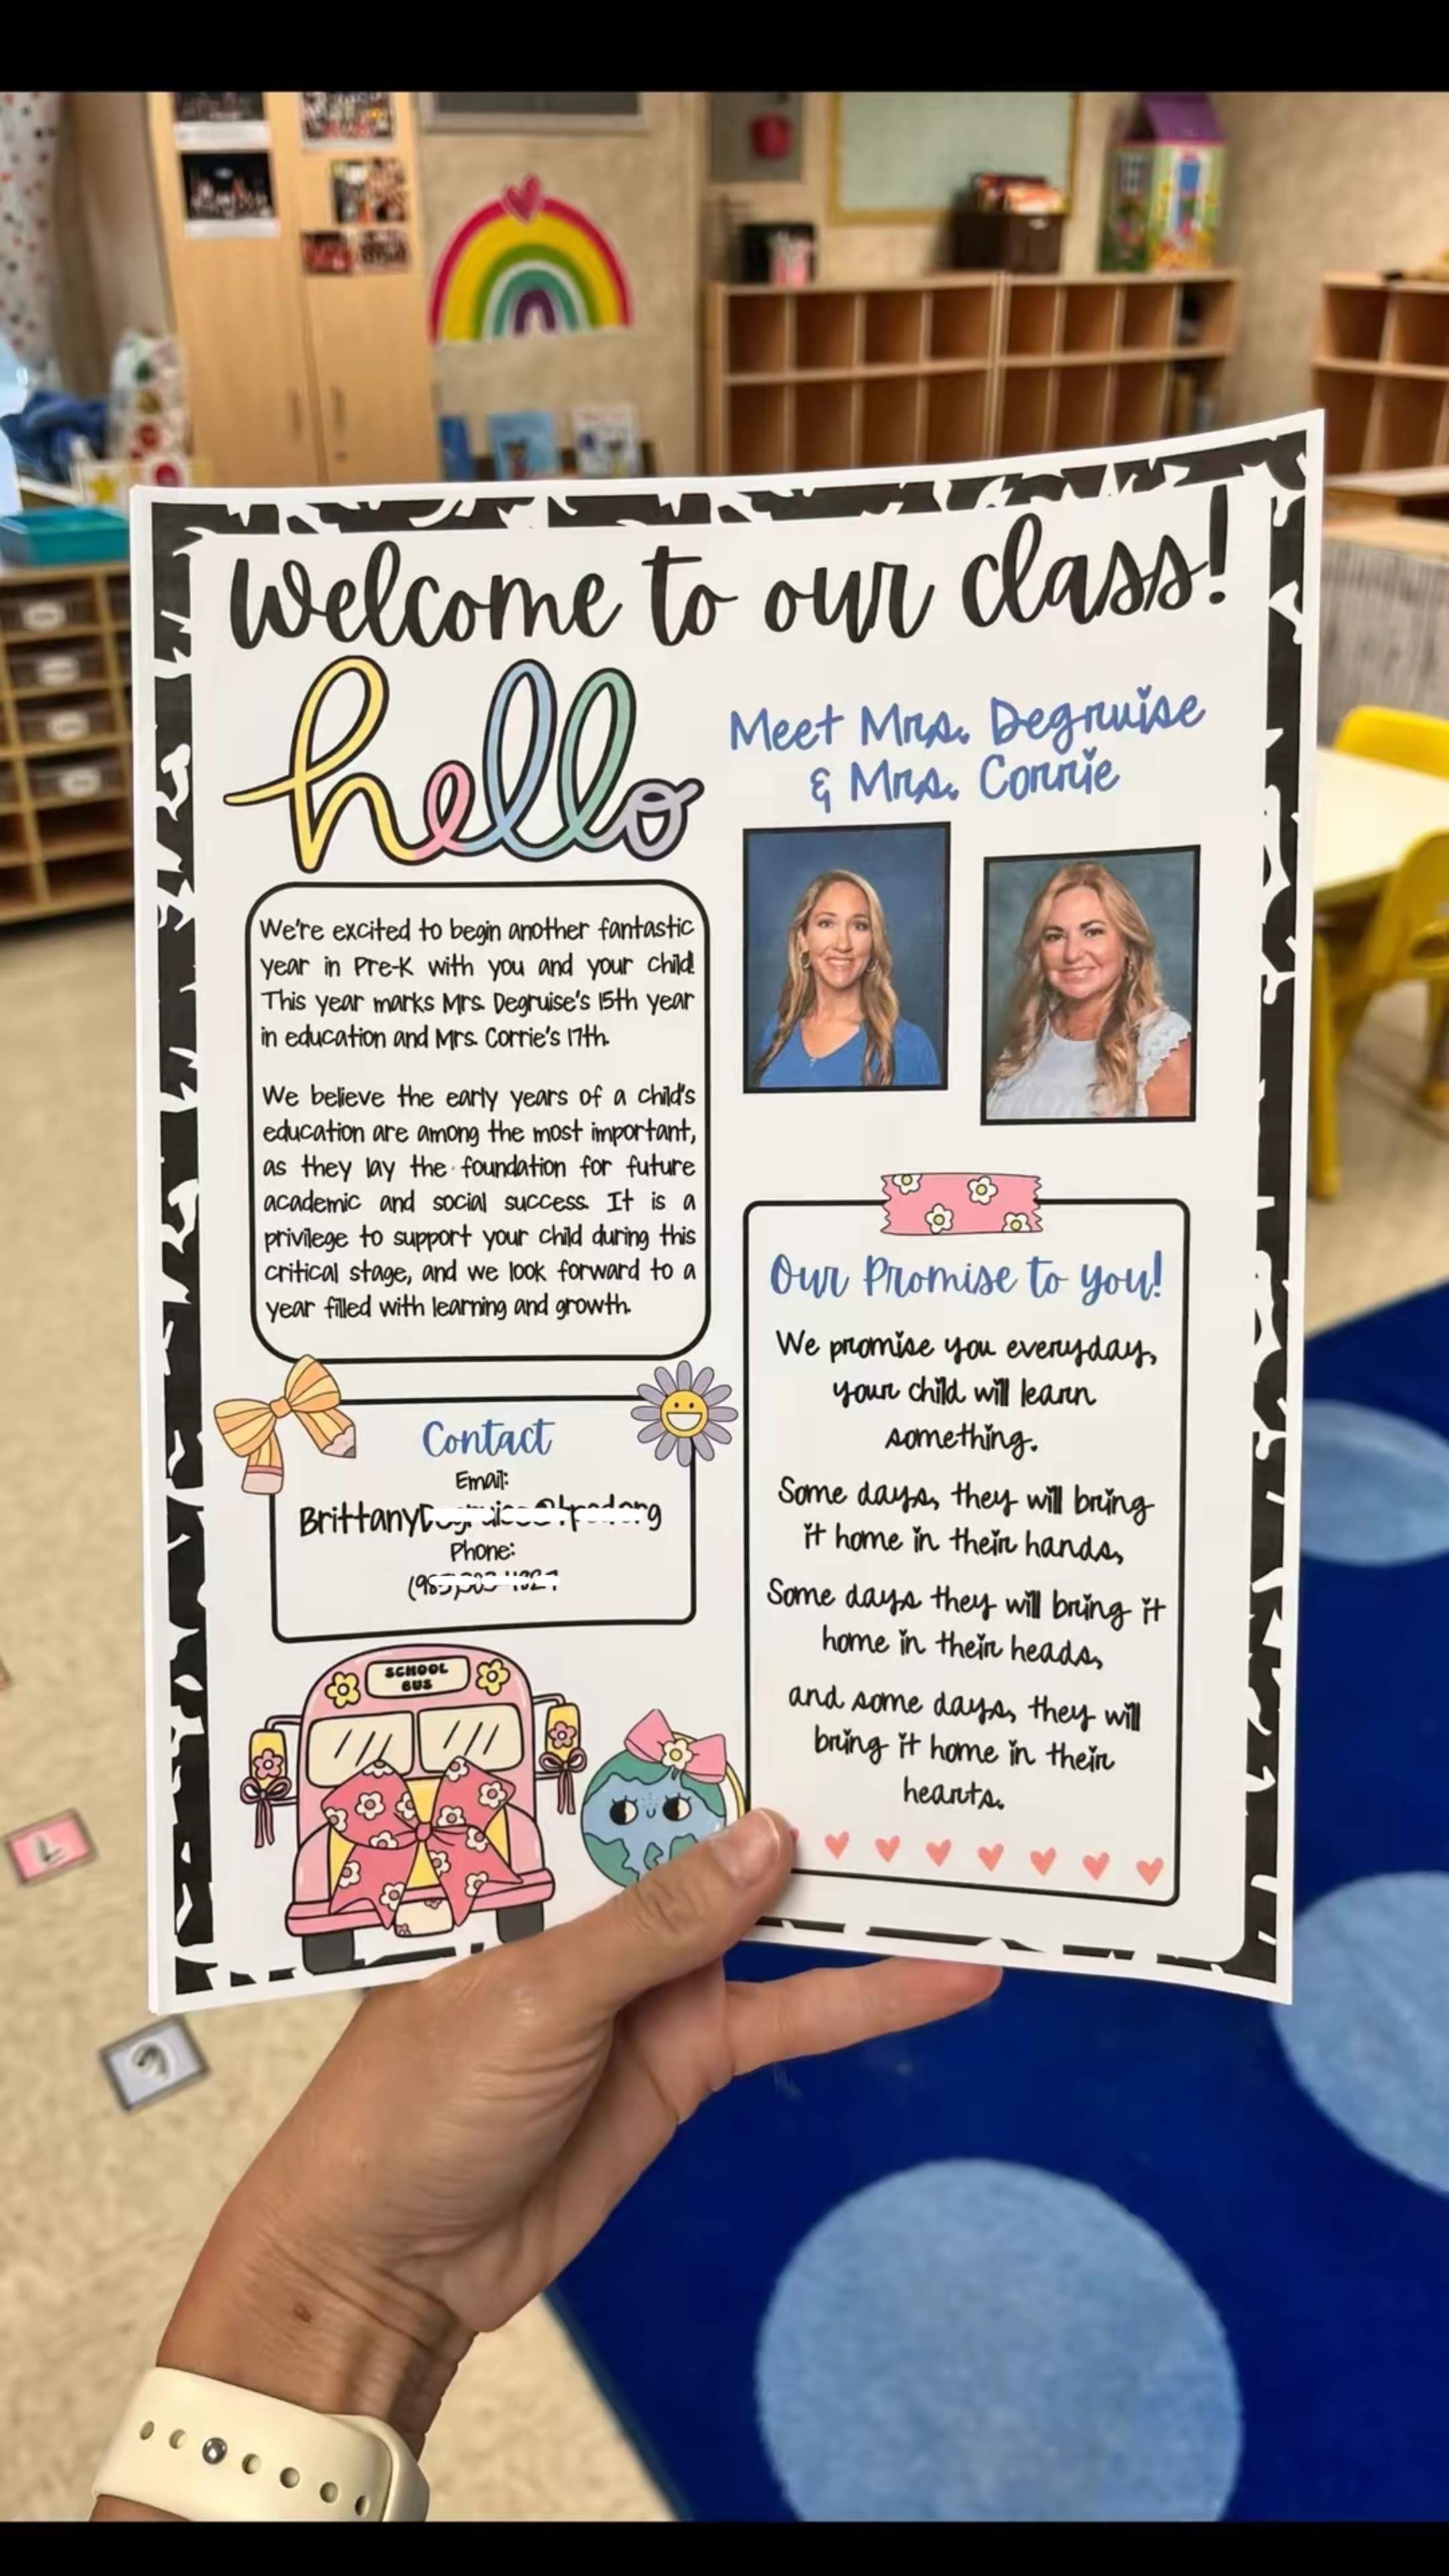 Welcome to our class!
hello
Meet Mrs. Degruise
& Mrs. Corrie
We're excited to begin another fantastic
year in Pre-K with you and your child!
This year marks Mrs. Degruise's 15th year
in education and Mrs. Corrie's 17th.
We believe the early years of a child's
education are among the most important,
as they lay the foundation for future
academic and social success. It is a
privilege to support your child during this
critical stage, and we look forward to a
year filled with learning and growth.
Contact
Email:
Phone:
SCHOOL
BUS
Our Promise to you!
We promise you everyday,
your child will learn
something.
Some days, they will bring
it home in their hands,
Some days they will bring it
home in their heads,
and some days, they will
bring it home in their
hearts.